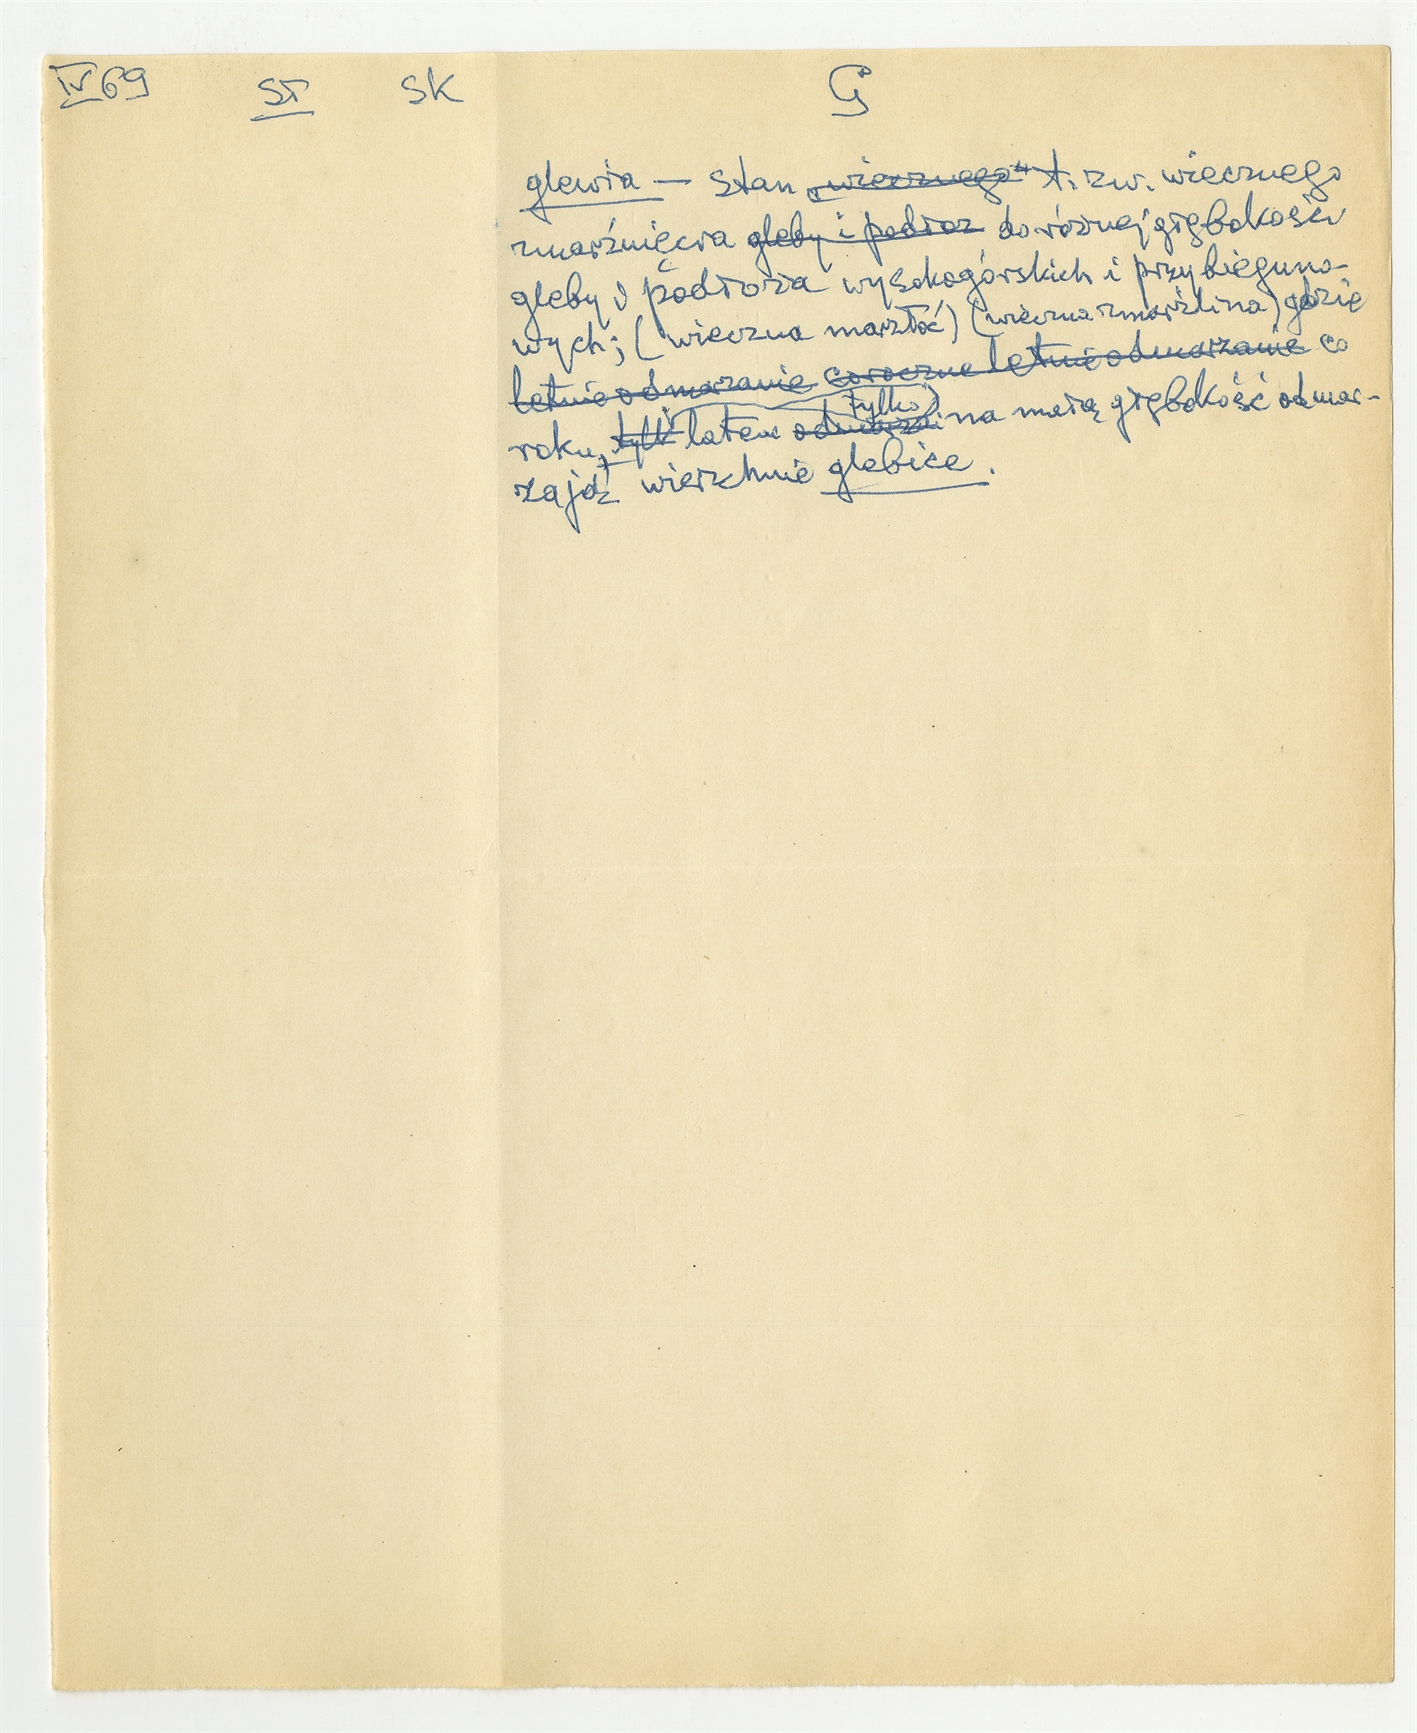 IV 69 ST SK G
glewia — stan „wiecznego" t. zw. wiecznego
zmarźnięcia gleby i podłoż do różnej głębokości
gleby i podłoża wysokogórskich i przybieguno-
wych; (wieczna marzłoć) (wieczna zmarzlina) gdzie
letnie odmarzanie coroczne letnie odmarzanie co
tylko
roku, tylk latem odmarza na małą głębokość odmar-
zają wierzchnie glebice.